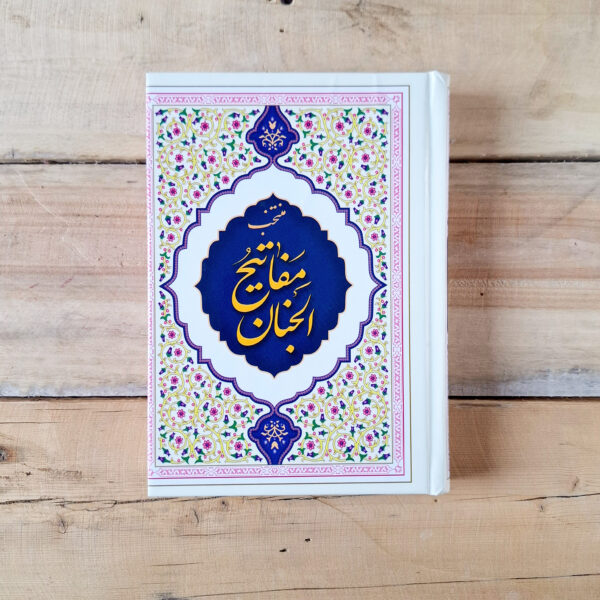 منتخب
مَفاتیحُ
الجنان